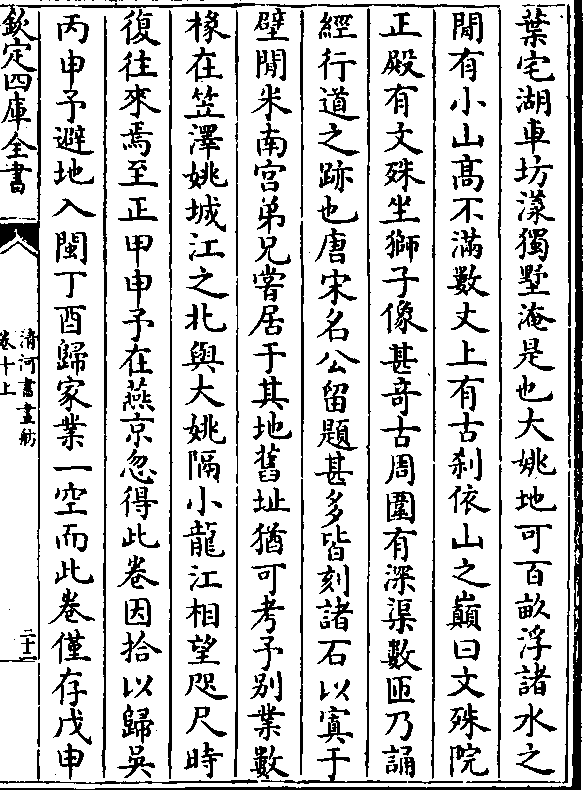 葉宅湖車坊漾獨墅淹是也大姚地可百畝浮諸水之
閒有小山高不滿數丈上有古刹依山之巔曰文殊院
正殿有文殊坐獅子像甚竒古周圍有深渠數匝乃誦
經行道之跡也唐宋名公留題甚多皆刻諸石以寘于
壁閒米南宫弟兄嘗居于其地舊址猶可考予别業數
椽在笠澤姚城江之北與大姚隔小龍江相望咫尺時
復往來焉至正甲申予在燕京忽得此卷因拾以歸吳
丙申予避地入閩丁酉歸家業一空而此卷僅存戊申
欽定四庫全書
清河書畫舫
卷十上
二十二